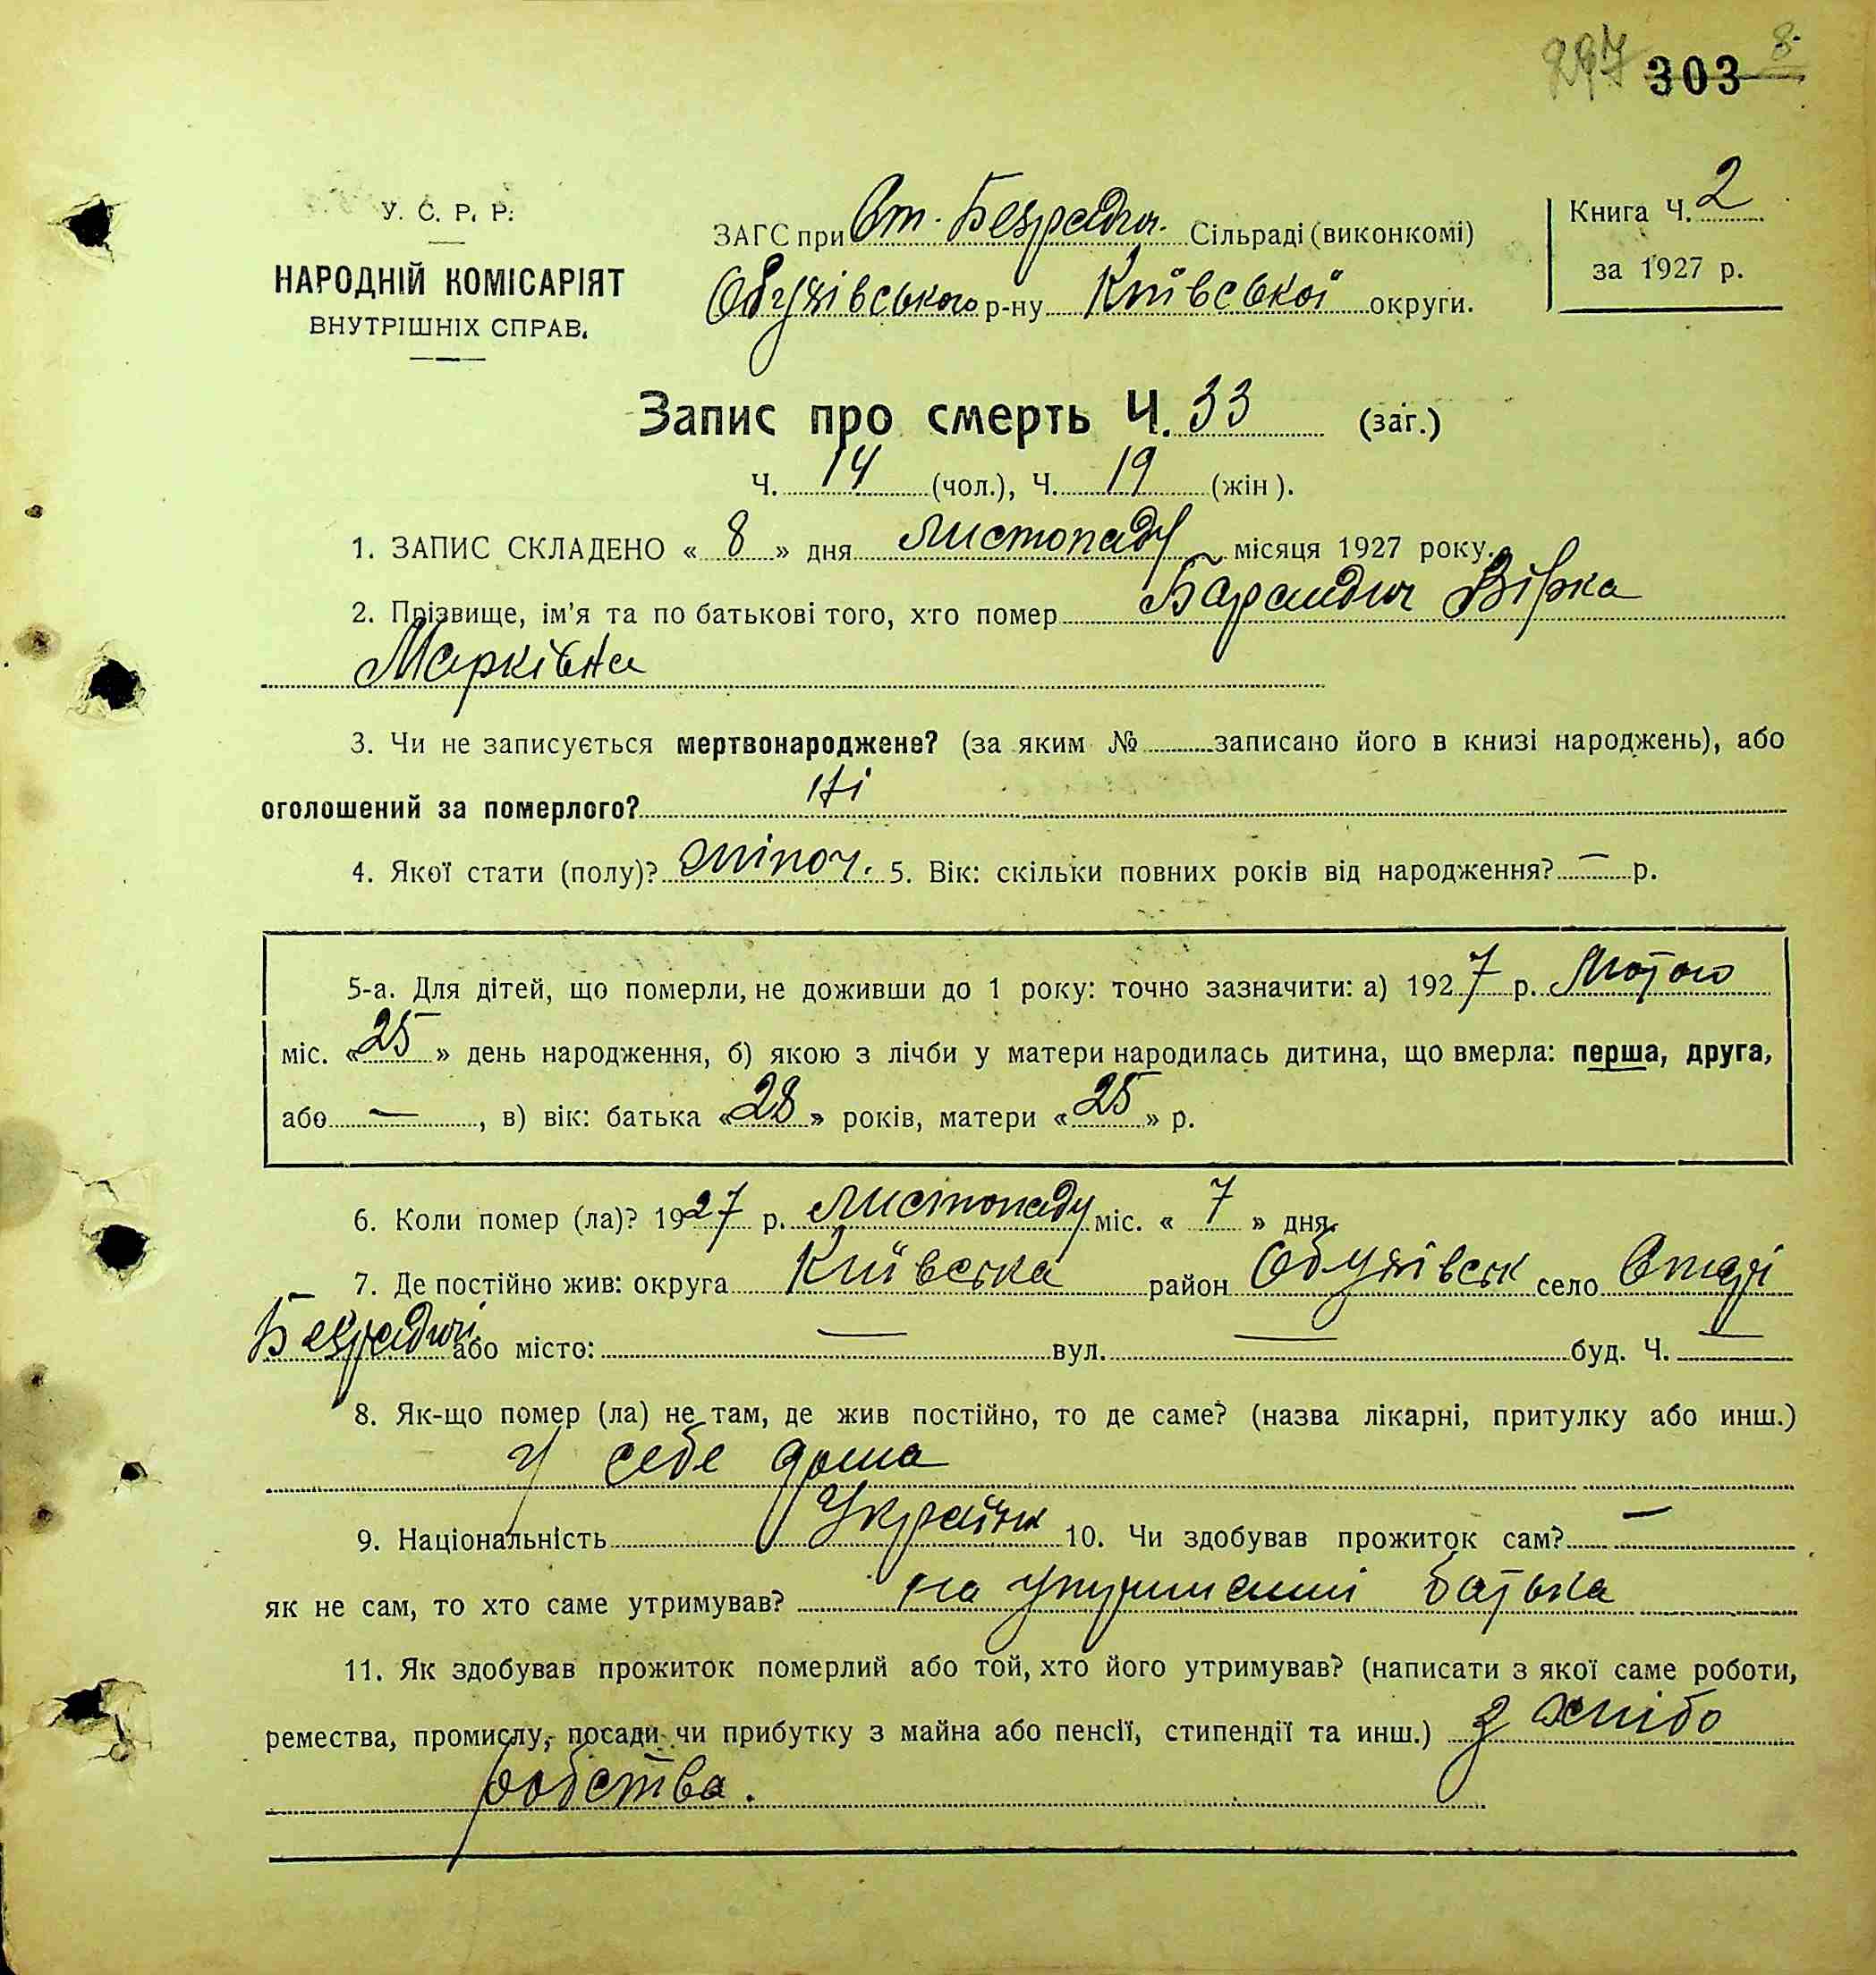 297 303 8
У. С. Р. Р.
НАРОДНІЙ КОМІСАРІЯТ
ВНУТРІШНІХ СПРАВ.
ЗАГС при Ст. Безрадич. Сільраді (виконкомі)
Обухівського р-ну Київської округи.
Книга Ч. 2
за 1927 р.
Запис про смерть Ч. 33 (заг.)
Ч. 14 (чол.), Ч. 19 (жін).
1. ЗАПИС СКЛАДЕНО « 8 » дня листопаду місяця 1927 року.
2. Прізвище, ім'я та по батькові того, хто помер Вірка
Марківна
3. Чи не записується мертвонароджене? (за яким № записано його в книзі народжень), або
оголошений за померлого? Ні
4. Якої стати (полу)? жіноч. 5. Вік: скільки повних років від народження? — р.
5-а. Для дітей, що померли, не доживши до 1 року: точно зазначити: а) 1927 р. Лютого
міс. « 25 » день народження, б) якою з лічби у матери народилась дитина, що вмерла: перша, друга,
або —, в) вік: батька « 28 » років, матери « 25 » р.
6. Коли помер (ла)? 1927 р. Листопаду міс. « 7 » дня.
7. Де постійно жив: округа Київська район Обухівськ село Старі
Безрадичі або місто: — вул. — буд. Ч. —
8. Як-що помер (ла) не там, де жив постійно, то де саме? (назва лікарні, притулку або инш.)
У себе дома
9. Національність Україн 10. Чи здобував прожиток сам? —
як не сам, то хто саме утримував? на утриманні батька
11. Як здобував прожиток померлий або той, хто його утримував? (написати з якої саме роботи,
ремества, промислу, посади чи прибутку з майна або пенсії, стипендії та инш.) з хлібо
робства.